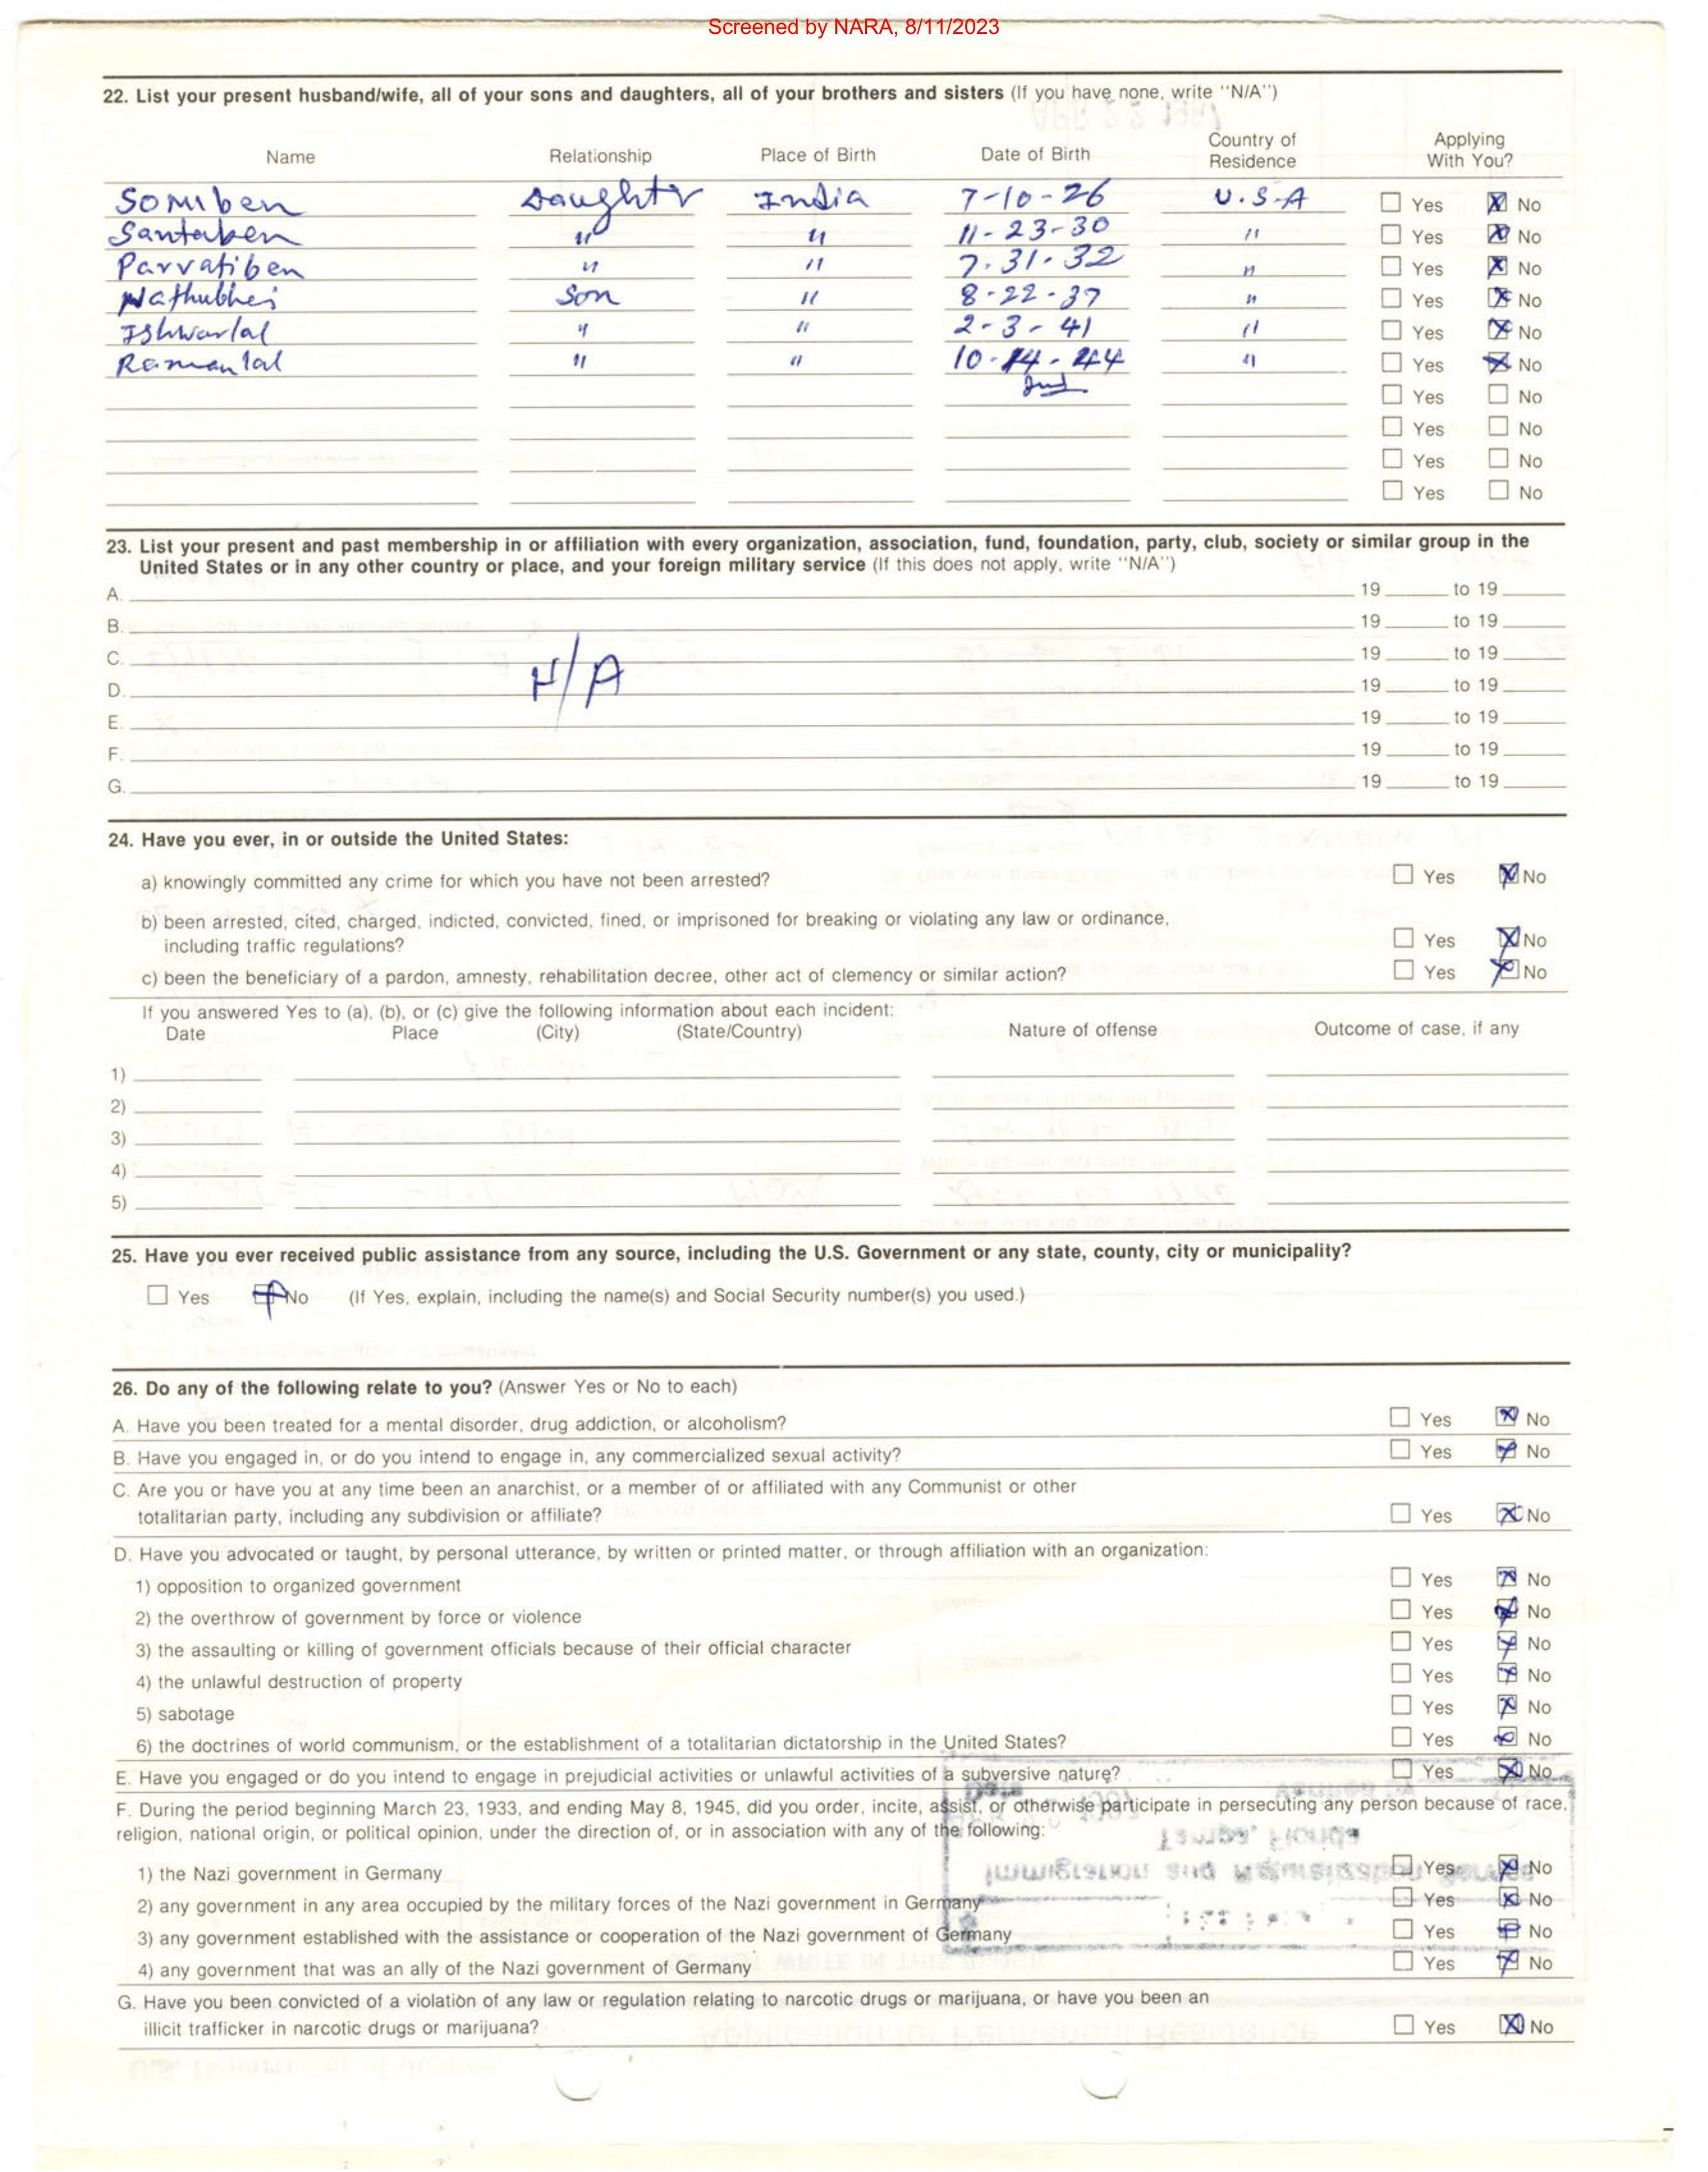 Screened by NARA, 8/11/2023
22. List your present husband/wife, all of your sons and daughters, all of your brothers and sisters (If you have none, write "N/A")
Name Relationship Place of Birth Date of Birth Country of Residence Applying With You?
Somiben Daughter India 7-10-26 U.S.A ☐ Yes ☒ No
Santaben " " 11-23-30 " ☐ Yes ☒ No
Parvatiben " " 7-31-32 " ☐ Yes ☒ No
Nathubhai Son " 8-22-37 " ☐ Yes ☒ No
Ishwarlal " " 2-3-41 " ☐ Yes ☒ No
Ramanlal " " 10-14-44 " ☐ Yes ☒ No
☐ Yes ☐ No
☐ Yes ☐ No
☐ Yes ☐ No
☐ Yes ☐ No
23. List your present and past membership in or affiliation with every organization, association, fund, foundation, party, club, society or similar group in the
United States or in any other country or place, and your foreign military service (If this does not apply, write "N/A")
A. 19 to 19
B. 19 to 19
C. 19 to 19
N/A
D. 19 to 19
E. 19 to 19
F. 19 to 19
G. 19 to 19
24. Have you ever, in or outside the United States:
a) knowingly committed any crime for which you have not been arrested? ☐ Yes ☒ No
b) been arrested, cited, charged, indicted, convicted, fined, or imprisoned for breaking or violating any law or ordinance,
including traffic regulations? ☐ Yes ☒ No
c) been the beneficiary of a pardon, amnesty, rehabilitation decree, other act of clemency or similar action? ☐ Yes ☒ No
If you answered Yes to (a), (b), or (c) give the following information about each incident:
Date Place (City) (State/Country) Nature of offense Outcome of case, if any
1)
2)
3)
4)
5)
25. Have you ever received public assistance from any source, including the U.S. Government or any state, county, city or municipality?
☐ Yes ☒ No (If Yes, explain, including the name(s) and Social Security number(s) you used.)
26. Do any of the following relate to you? (Answer Yes or No to each)
A. Have you been treated for a mental disorder, drug addiction, or alcoholism? ☐ Yes ☒ No
B. Have you engaged in, or do you intend to engage in, any commercialized sexual activity? ☐ Yes ☒ No
C. Are you or have you at any time been an anarchist, or a member of or affiliated with any Communist or other
totalitarian party, including any subdivision or affiliate? ☐ Yes ☒ No
D. Have you advocated or taught, by personal utterance, by written or printed matter, or through affiliation with an organization:
1) opposition to organized government ☐ Yes ☒ No
2) the overthrow of government by force or violence ☐ Yes ☒ No
3) the assaulting or killing of government officials because of their official character ☐ Yes ☒ No
4) the unlawful destruction of property ☐ Yes ☒ No
5) sabotage ☐ Yes ☒ No
6) the doctrines of world communism, or the establishment of a totalitarian dictatorship in the United States? ☐ Yes ☒ No
E. Have you engaged or do you intend to engage in prejudicial activities or unlawful activities of a subversive nature? ☐ Yes ☒ No
F. During the period beginning March 23, 1933, and ending May 8, 1945, did you order, incite, assist, or otherwise participate in persecuting any person because of race,
religion, national origin, or political opinion, under the direction of, or in association with any of the following:
1) the Nazi government in Germany ☐ Yes ☒ No
2) any government in any area occupied by the military forces of the Nazi government in Germany ☐ Yes ☒ No
3) any government established with the assistance or cooperation of the Nazi government of Germany ☐ Yes ☒ No
4) any government that was an ally of the Nazi government of Germany ☐ Yes ☒ No
G. Have you been convicted of a violation of any law or regulation relating to narcotic drugs or marijuana, or have you been an
illicit trafficker in narcotic drugs or marijuana? ☐ Yes ☒ No